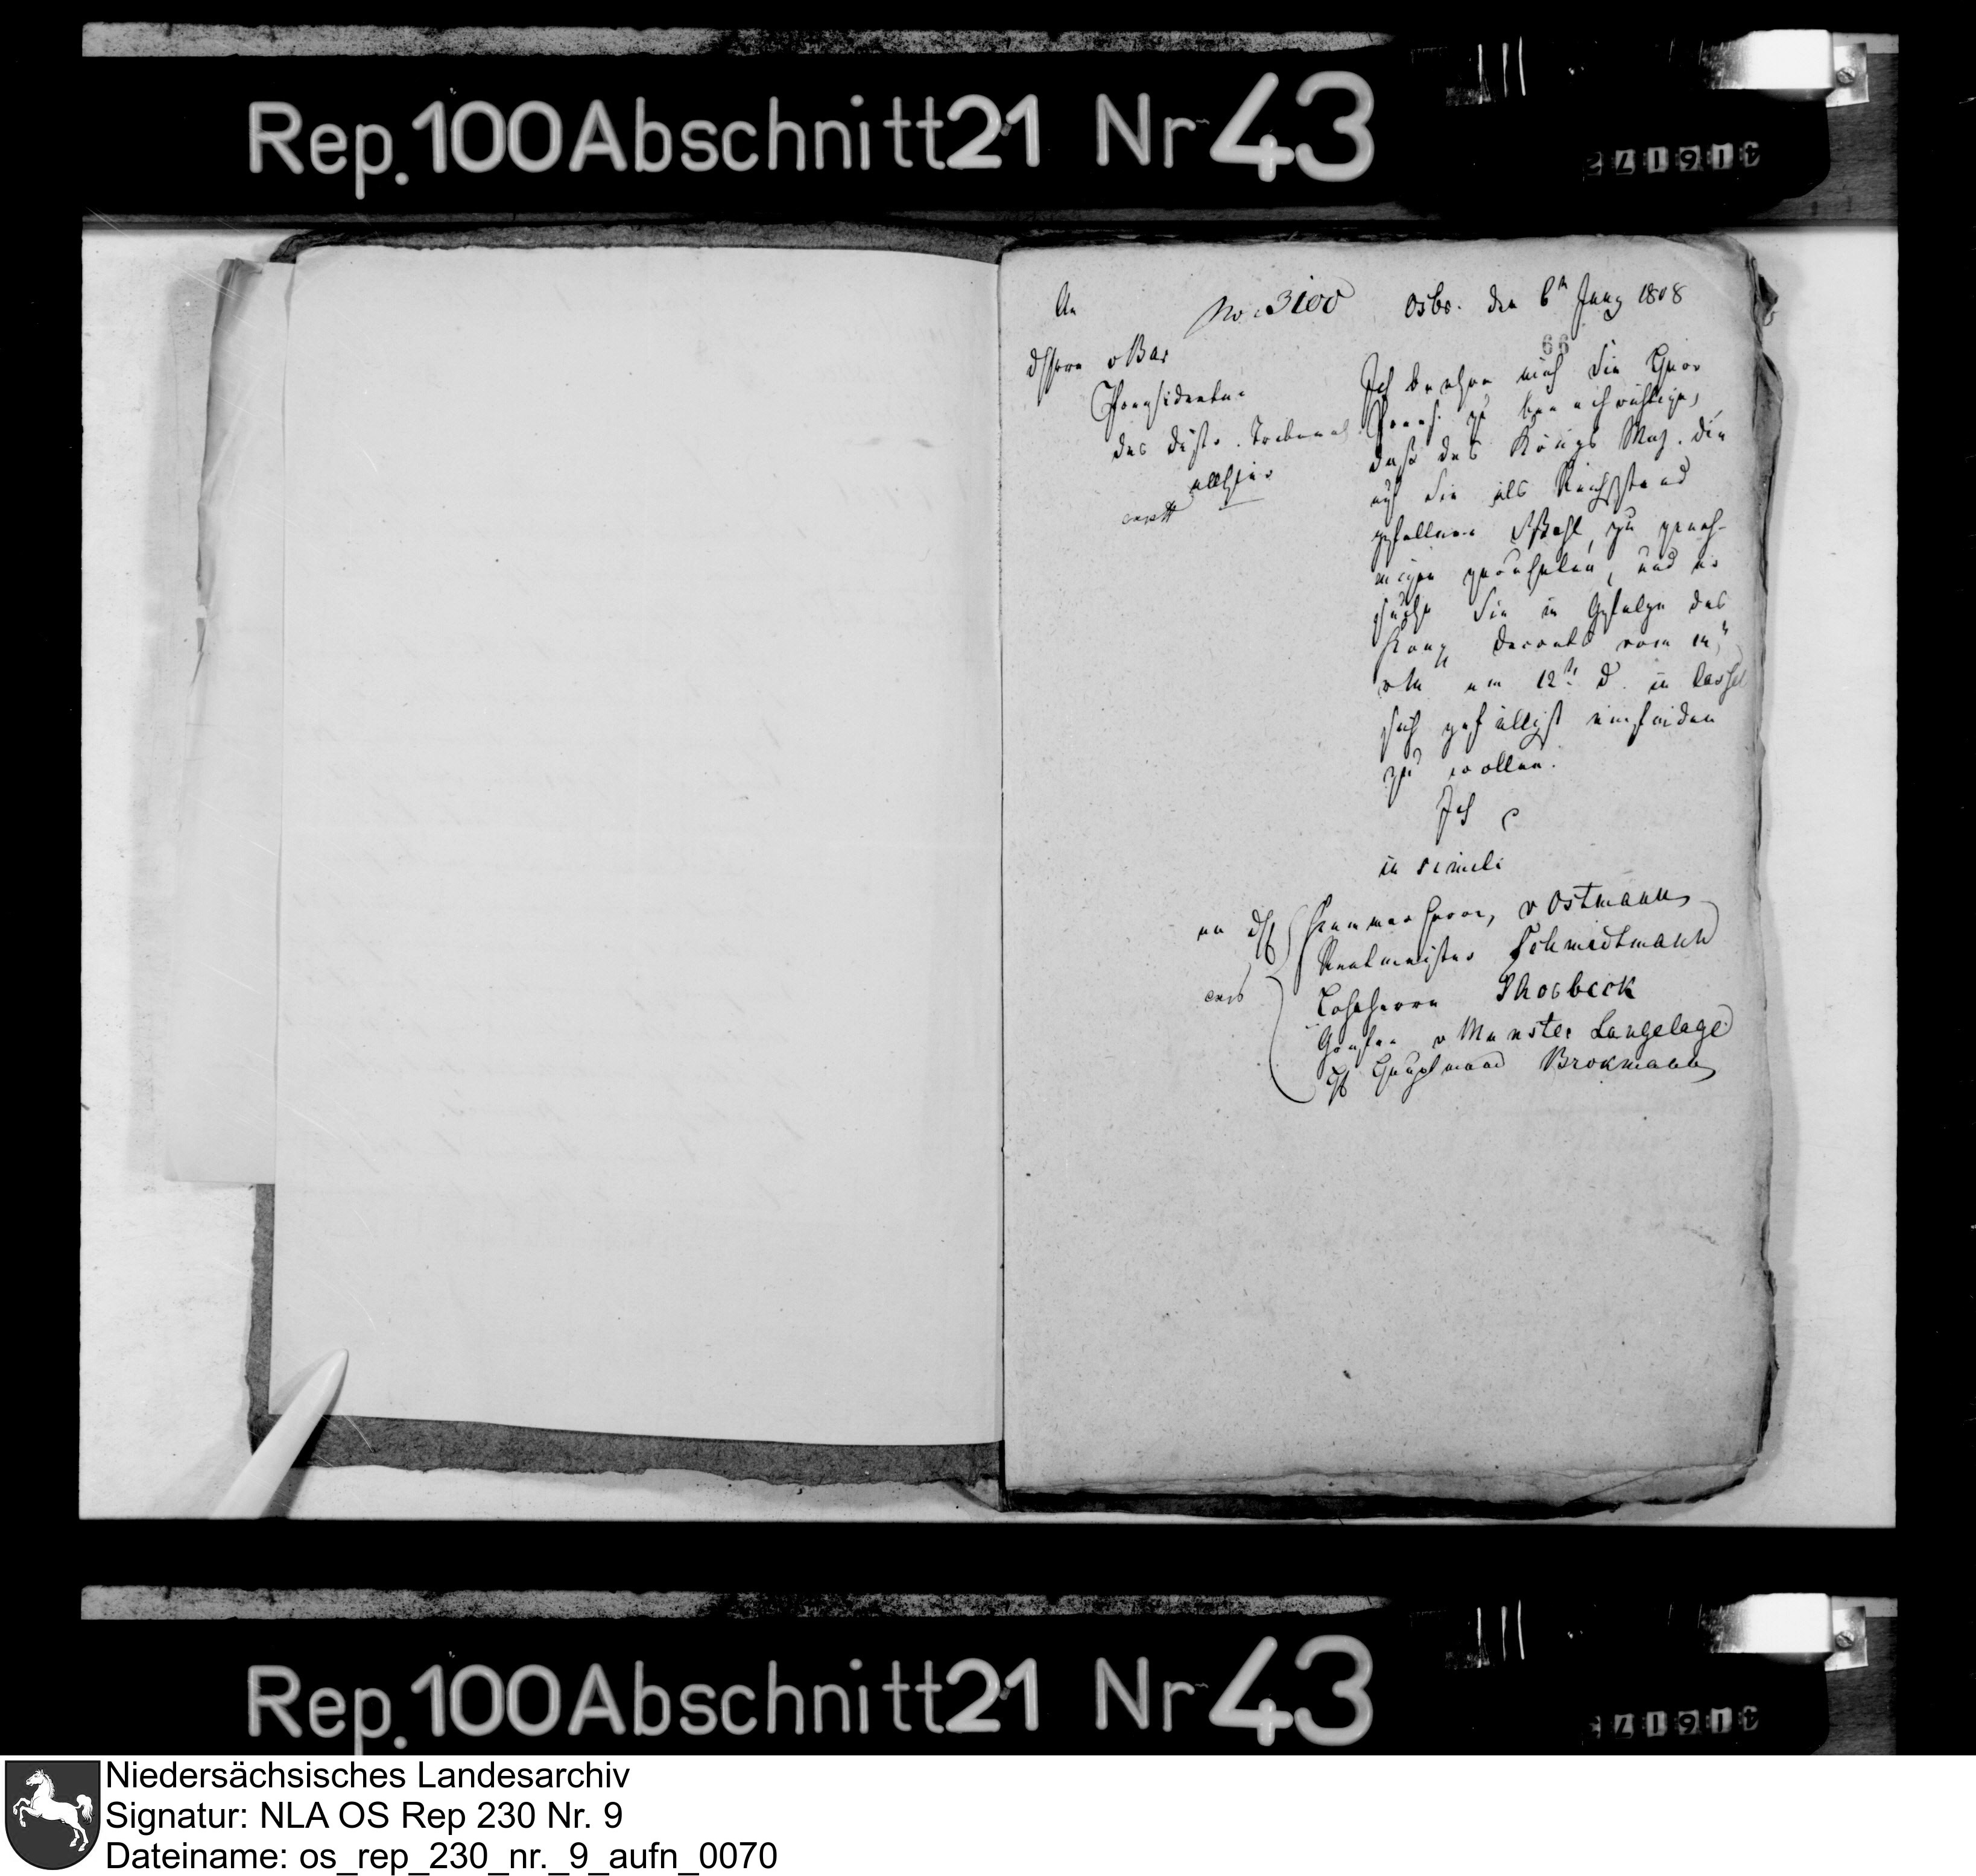 Rep. 100 Abschnitt 21 Nr 43
An
No. 3100
Osbr. den 6t Juny 1808
66
d Herrn v Bar
Praesidenten
des distr. Tribunals
allhier
Ich beehre mich Sie Herr
Praes. zu benachrichtigen,
daß des Königs Maj. die
auf Sie als Reichsstand
gefallene Wahl, zu geneh-
migen geruhet, und er
suche Sie in Gefolge des
decrets vom
am 12t d. in Cassel
sich gefälligst einfinden
zu wollen.
Ich
in simili
an Kammerherrn, v Ostmann
Rentmeister Schmidtmann
Lohherrn Thorbeck
Grafen v Munster Langelage
Hauptmann Brokmann
Rep. 100 Abschnitt 21 Nr 43
Niedersächsisches Landesarchiv
Signatur: NLA OS Rep 230 Nr. 9
Dateiname: os_rep_230_nr._9_aufn_0070